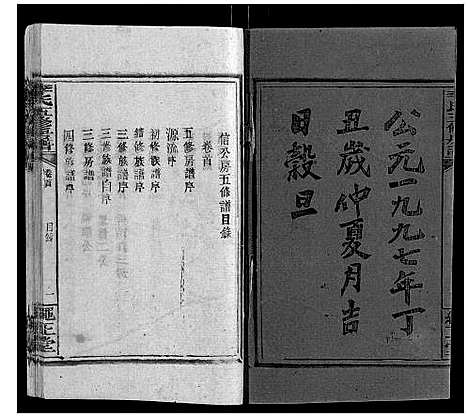 公元一九九七年丁
丑歲仲夏月吉
日穀旦
信公房五修譜目錄
卷首
五修房譜序
源流序
初修族譜序
續修族譜序
三修族譜序
三修房譜自序
三修房譜序
四修房譜序
氏五修房譜
卷首
目錄
一
繩正堂